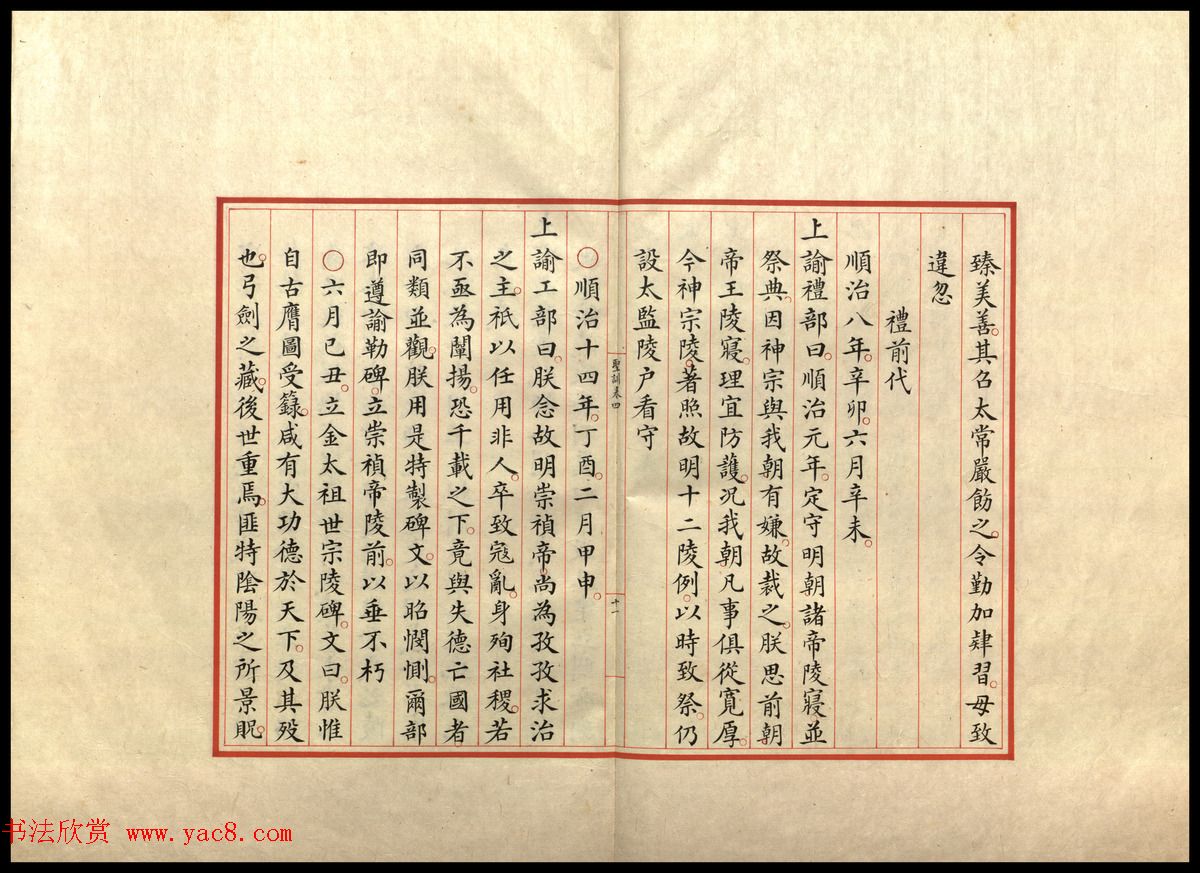 臻美善其召太常嚴飭之令勤加肄習毋致
違忽
禮前代
順治八年辛卯六月辛未
上諭禮部曰順治元年定守明朝諸帝陵寢並
祭典因神宗與我朝有嫌故裁之朕思前朝
帝王陵寢理宜防護況我朝凡事俱從寬厚
今神宗陵著照故明十二陵例以時致祭仍
設太監陵户看守
聖訓卷四
十一
○順治十四年丁酉二月甲申
上諭工部曰朕念故明崇禎帝尚為孜孜求治
之主祇以任用非人卒致寇亂身殉社稷若
不亟為闡揚恐千載之下竟與失德亡國者
同類並觀朕用是特製碑文以昭憫惻爾部
即遵諭勒碑立崇禎帝陵前以垂不朽
○六月己丑立金太祖世宗陵碑文曰朕惟
自古膺圖受籙咸有大功德於天下及其歿
也弓劍之藏後世重焉匪特陰陽之所景貺
书法欣赏 www.yac8.com